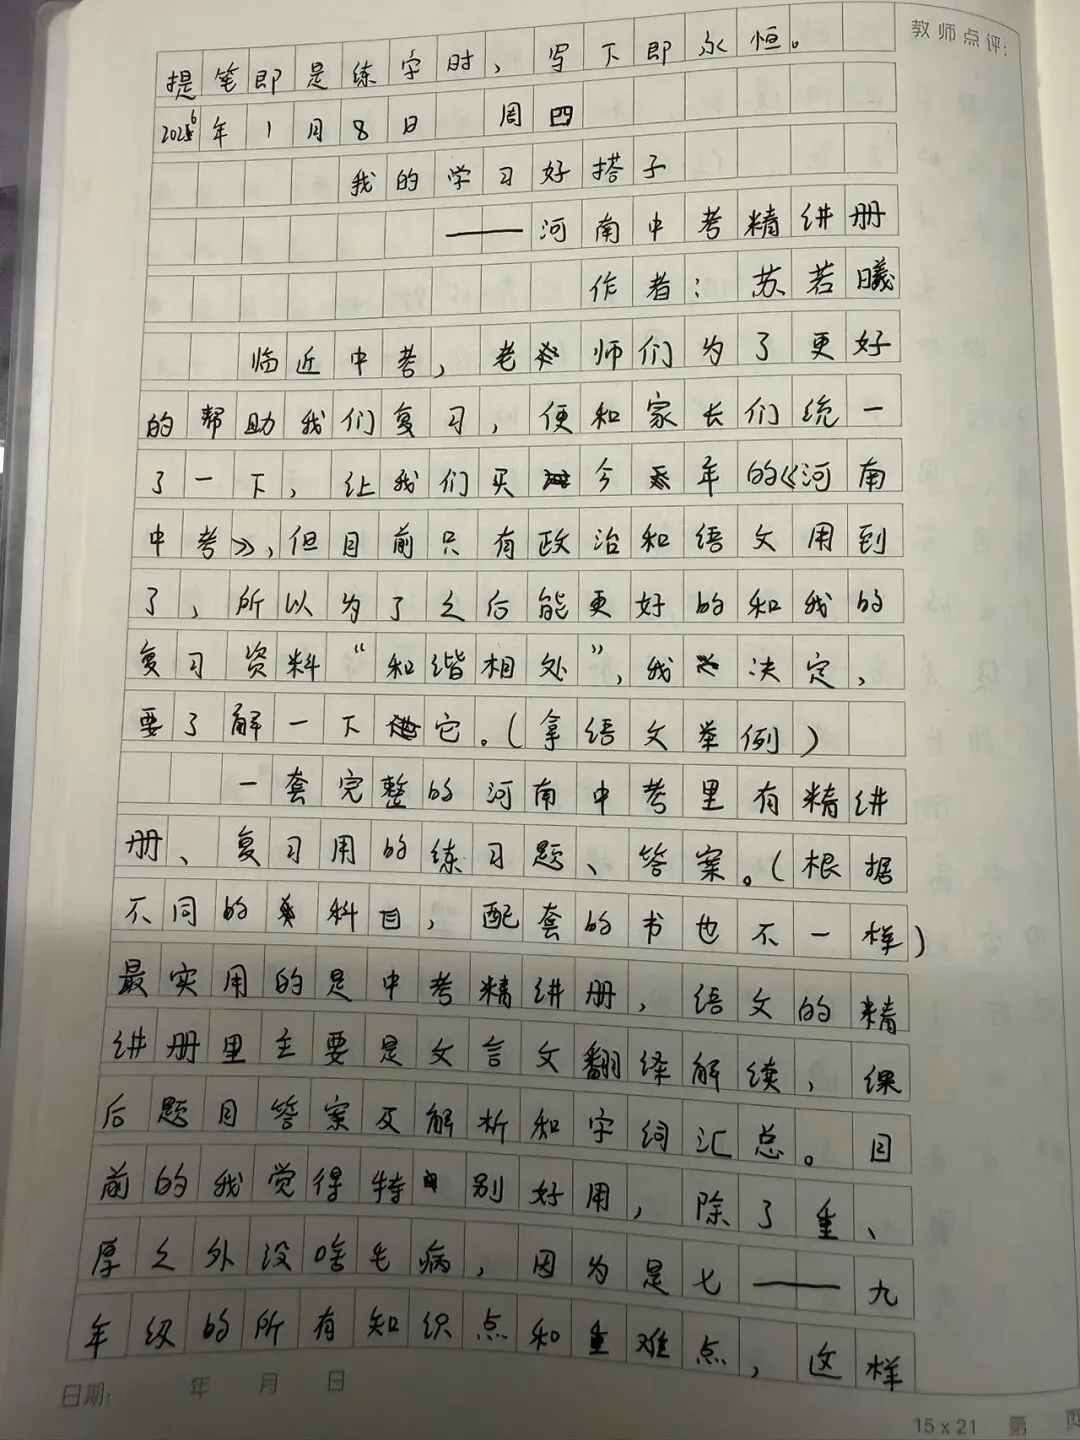 教师点评:
提笔即是练字时，写下即永恒。
2026年1月8日 周四
我的学习好搭子
——河南中考精讲册
作者：苏若曦
临近中考，老师们为了更好
的帮助我们复习，便和家长们统一
了一下，让我们买今年的《河南
中考》，但目前只有政治和语文用到
了，所以为了之后能更好的和我的
复习资料“和谐相处”，我决定，
要了解一下它。（拿语文举例）
一套完整的河南中考里有精讲
册、复习用的练习题、答案。（根据
不同的科目，配套的书也不一样）
最实用的是中考精讲册，语文的精
讲册里主要是文言文翻译解读，课
后题目答案及解析和字词汇总。目
前的我觉得特别好用，除了重、
厚之外没啥毛病，因为是七——九
年级的所有知识点和重难点，这样
日期: 年 月 日
15×21 第 页